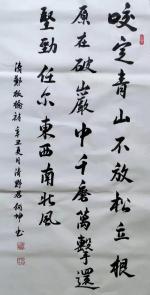 咬定青山不放松立根
原在破巖中千磨萬擊還
堅勁任尔東西南北風
清鄭板橋詩辛丑夏月清野居何坤書